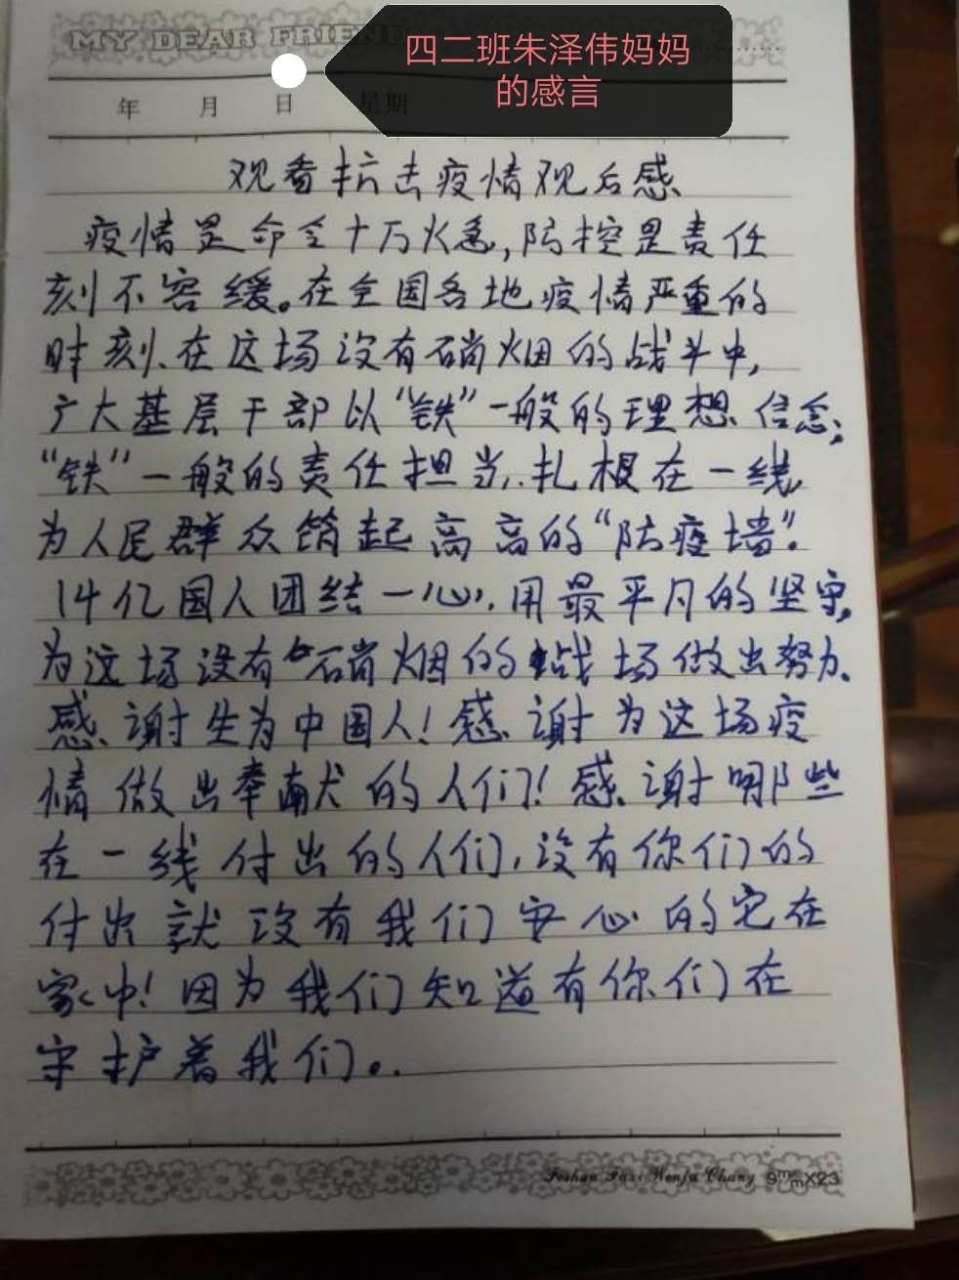 MY DEAR FRIEND
四二班朱泽伟妈妈
的感言
年 月 日 星期
观看抗击疫情观后感
疫情是命令十万火急,防控是责任
刻不容缓。在全国各地疫情严重的
时刻、在这场没有硝烟的战斗中,
广大基层干部以“铁”一般的理想信念;
“铁”一般的责任担当,扎根在一线
为人民群众筑起高高的“防疫墙”.
14亿国人团结一心,用最平凡的坚守,
为这场没有硝烟的战场做出努力、
感谢生为中国人!感谢为这场疫
情做出奉献的人们!感谢哪些
在一线付出的人们,没有你们的
付出就没有我们安心的宅在
家中!因为我们知道有你们在
守护着我们。.
Foshan Wenju Chang 9mmX23